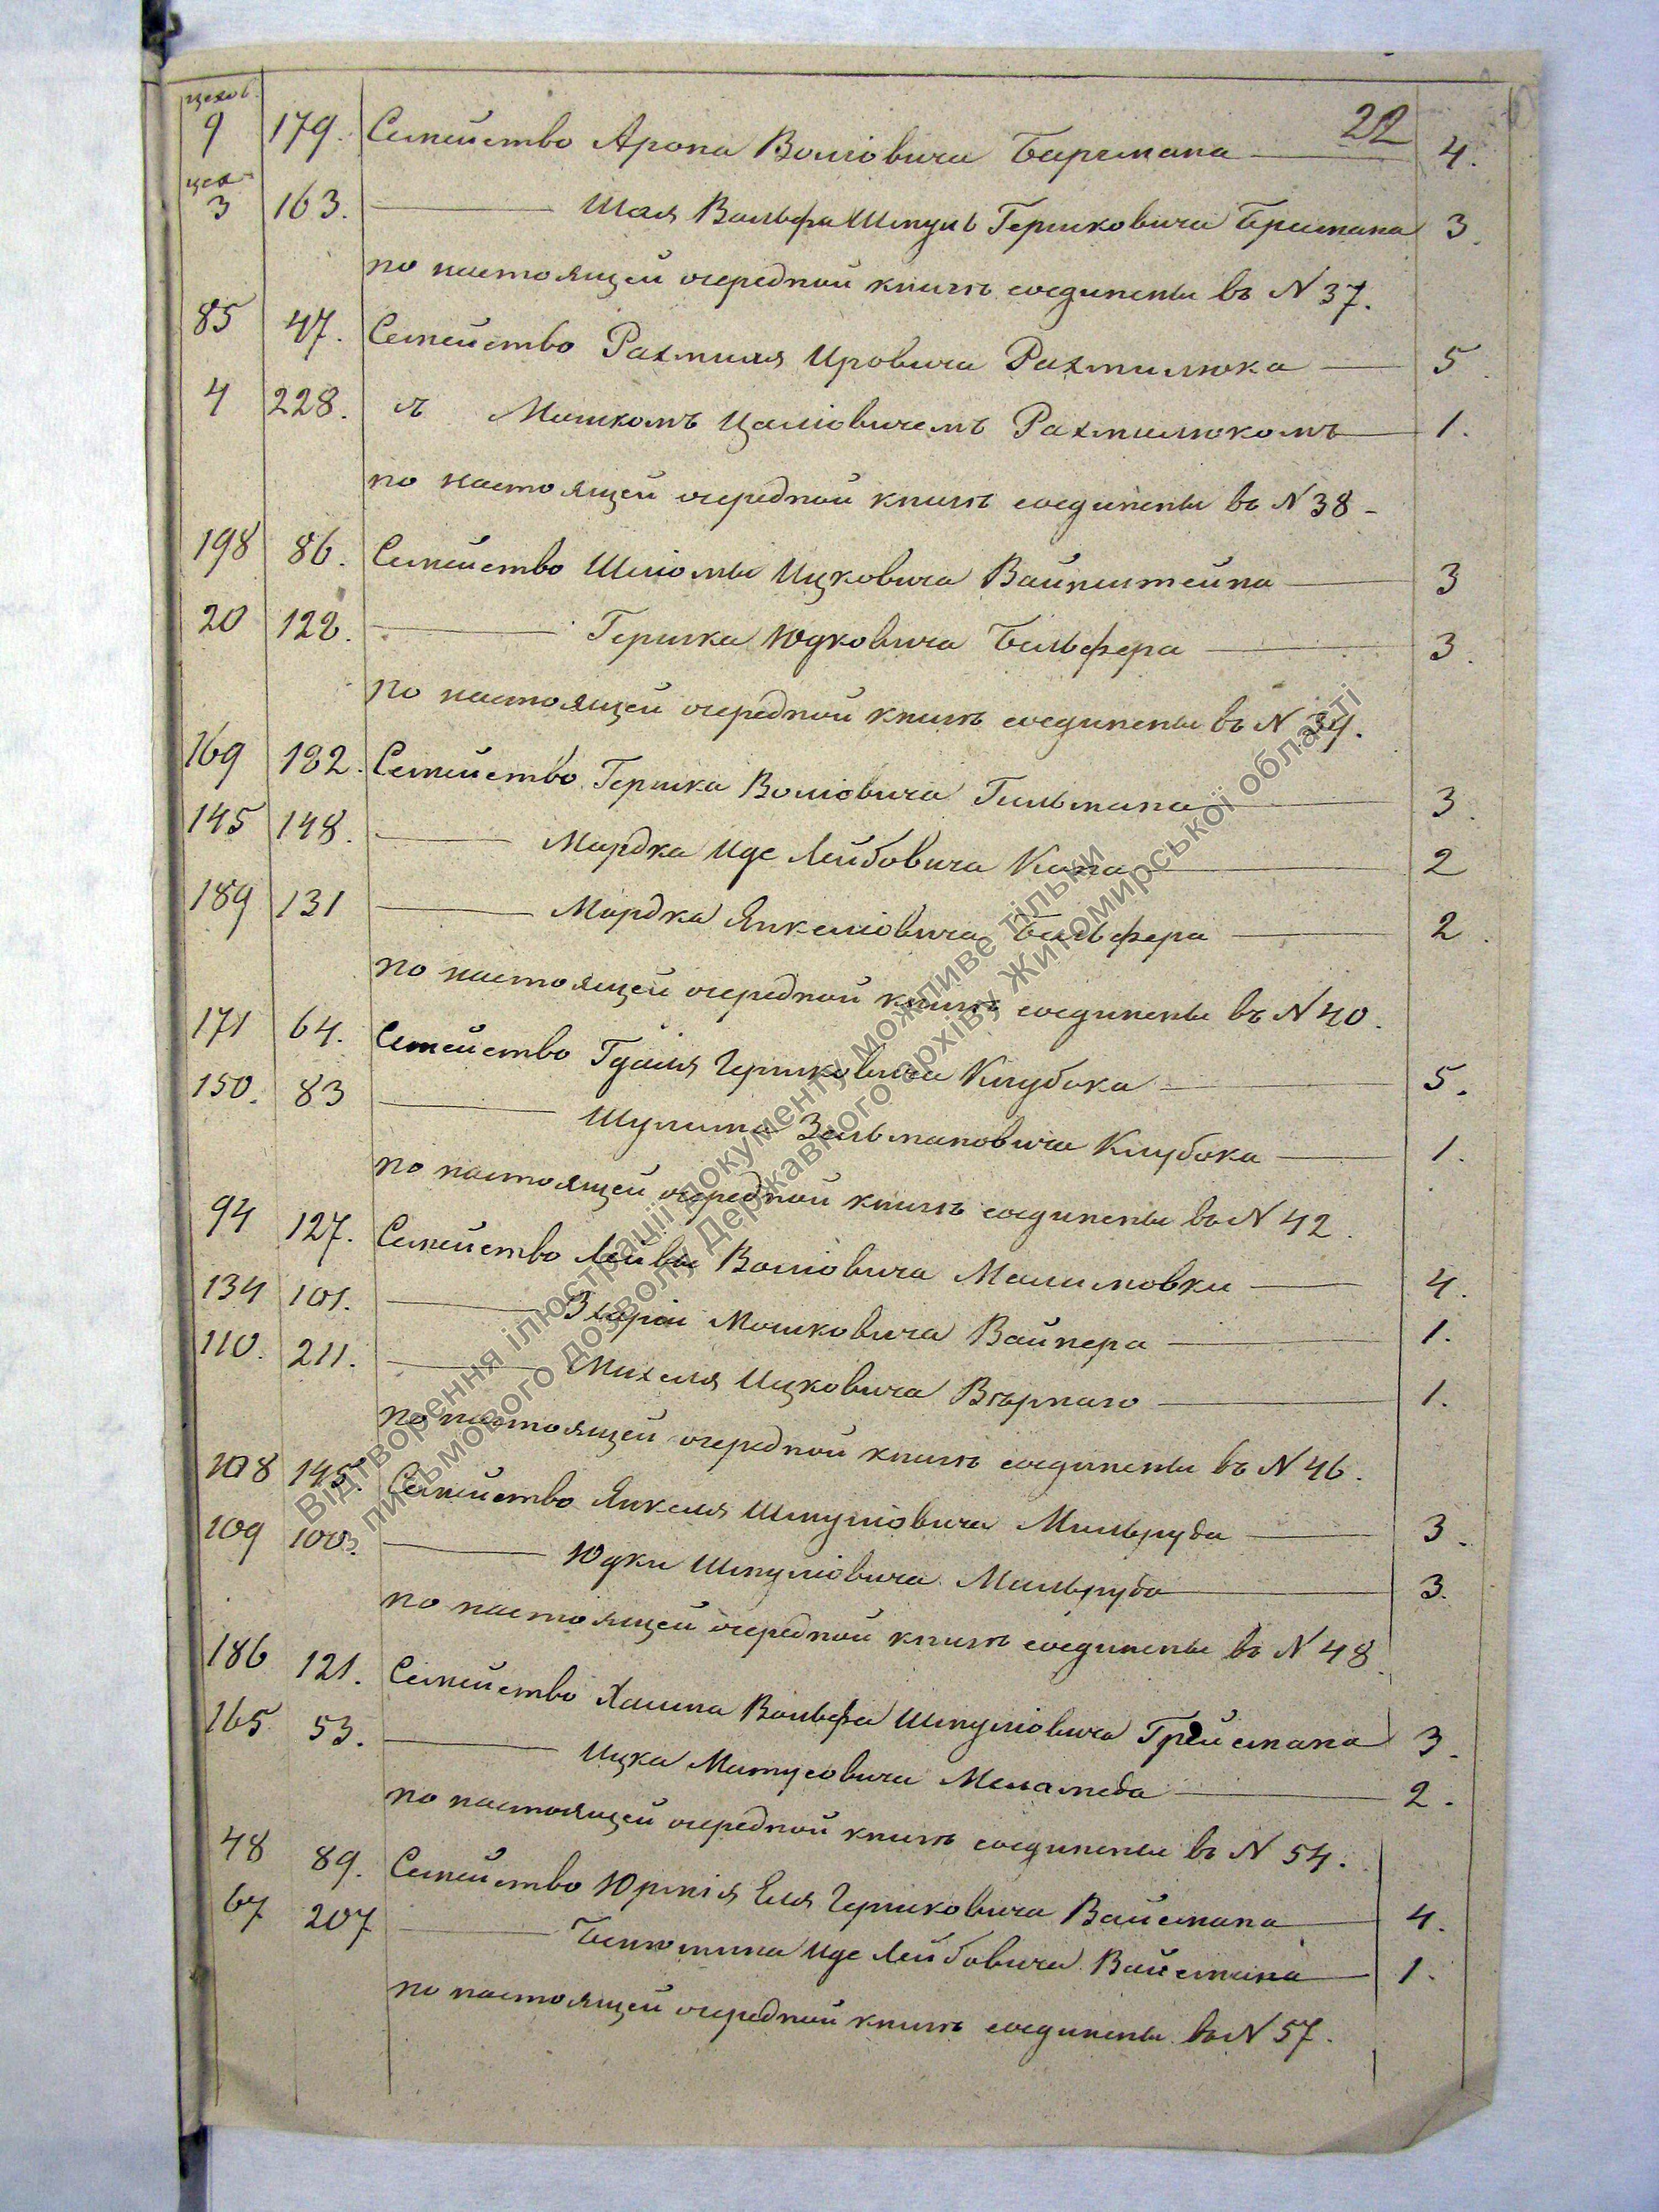 22
цехов.
9 179. Семейство Арона Волговича Бармана 4.
цех.
3 163. Шая Вольфа Шмуль Гершковича Бримана 3.
по настоящей очередной книгѣ соединены въ N 37.
85 47. Семейство Рахмиля Ировича Рахмилюка 5.
4 228. съ Мошкомъ Цаліовичемъ Рахмилюкомъ 1.
по настоящей очередной книгѣ соединены въ N 38
198 86. Семейство Шліомы Ицковича Вайнштейна 3
20 122. Гершка Юдковича Бельфера 3.
по настоящей очередной книгѣ соединены въ N 39.
169 182. Семейство Гершка Воліовича Гильмана 3.
145 148. Мордка Иде Лейбовича Кана 2
189 131 Мордка Янкеліовича Бельфера 2.
по настоящей очередной книгѣ соединены въ N 40.
171 64. Семейство Гдаля Гершковича Клубока 5.
150. 83 Шулима Зельмановича Клубока 1.
по настоящей очередной книгѣ соединены въ N 42.
94 127. Семейство Лейбы Воліовича Малимовки 4.
134 101. Мошковича Вайнера 1.
110. 211. Михеля Ицковича Вѣрнаго 1.
по настоящей очередной книгѣ соединены въ N 46.
108 145. Семейство Янкеля Шмуліовича Мильруда 3.
109 100. Юдки Шмуліовича Мильруда 3.
по настоящей очередной книгѣ соединены въ N 48.
186 121. Семейство Хаима Вольфа Шмуліовича Грейсмана 3.
165 53. Ицка Матусовича Меламеда 2.
по настоящей очередной книгѣ соединены въ N 54.
48 89. Семейство Еля Гершковича Вайсмана 4.
67 207 Беньомина Иде Лейбовича Вайсмана 1.
по настоящей очередной книгѣ соединены въ N 57.
Відтворення ілюстрації документу можливе тільки
з письмового дозволу Державного архіву Житомирської області